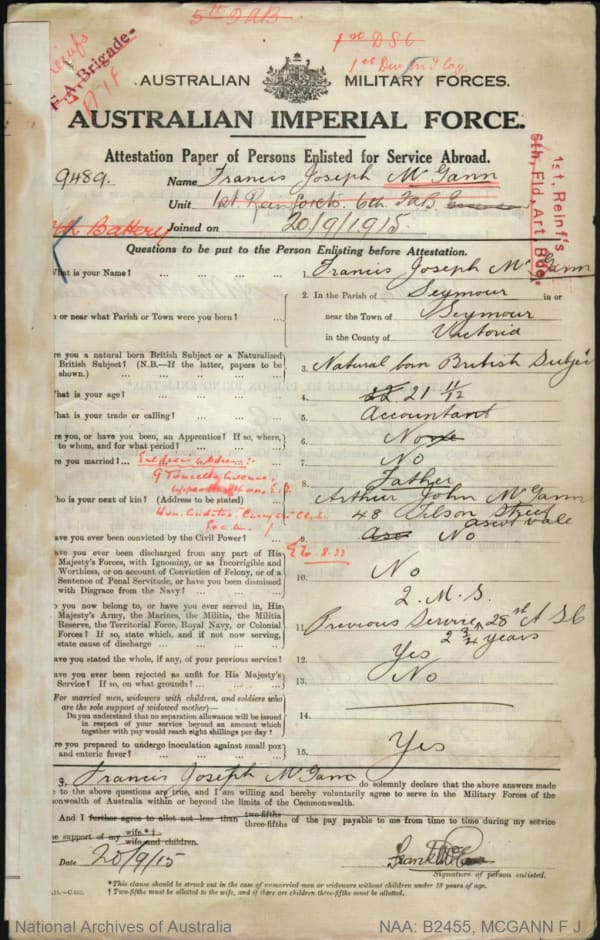 5th FAB
1st DSC
F.A. Brigade
AUSTRALIAN MILITARY FORCES.
AUSTRALIAN IMPERIAL FORCE.
Attestation Paper of Persons Enlisted for Service Abroad.
9489. Name Francis Joseph McGann
Unit 1st Reinforcts. 6th FAB
Battery Joined on 20/9/1915
1st. Reinf's
6th, Fld, Art, Bde.
Questions to be put to the Person Enlisting before Attestation.
hat is your Name? ... 1. Francis Joseph McGann
2. In the Parish of Seymour in or
n or near what Parish or Town were you born? ... near the Town of Seymour
in the County of Victoria
re you a natural born British Subject or a Naturalized
British Subject? (N.B.—If the latter, papers to be
shown.) ... 3. Natural born British Subje
hat is your age? ... 4. 22. 21 11/12
hat is your trade or calling? ... 5. Accountant
re you, or have you been, an Apprentice? If so, where,
to whom, and for what period? ... 6. No
re you married? ... 7. No
8. Father
ho is your next of kin? (Address to be stated) Arthur John McGann
48 Filson Street
ascot vale
ave you ever been convicted by the Civil Power? ... 9. No
ave you ever been discharged from any part of His
Majesty's Forces, with Ignominy, or as Incorrigible and
Worthless, or on account of Conviction of Felony, or of a
Sentence of Penal Servitude, or have you been dismissed
with Disgrace from the Navy? ... 10. No
o you now belong to, or have you ever served in, His
Majesty's Army, the Marines, the Militia, the Militia
Reserve, the Territorial Force, Royal Navy, or Colonial
Forces? If so, state which, and if not now serving,
state cause of discharge ... 11. Previous Service 28st A S C
2 3/4 years
ave you stated the whole, if any, of your previous service? 12. Yes
ave you ever been rejected as unfit for His Majesty's
Service? If so, on what grounds? ... 13. No
(For married men, widowers with children, and soldiers who
are the sole support of widowed mother)—
Do you understand that no separation allowance will be issued
in respect of your service beyond an amount which
together with pay would reach eight shillings per day? 14.
re you prepared to undergo inoculation against small pox
and enteric fever? ... 15. Yes
I, Francis Joseph McGann do solemnly declare that the above answers made
e to the above questions are true, and I am willing and hereby voluntarily agree to serve in the Military Forces of the
onwealth of Australia within or beyond the limits of the Commonwealth.
And I further agree to allot not less than two-fifths three-fifths of the pay payable to me from time to time during my service
e support of my wife.*† wife and children.
Date 20/9/15
Signature of person enlisted.
*This clause should be struck out in the case of unmarried men or widowers without children under 18 years of age.
† Two-fifths must be allotted to the wife, and if there are children three-fifths must be allotted.
National Archives of Australia NAA: B2455, MCGANN F J